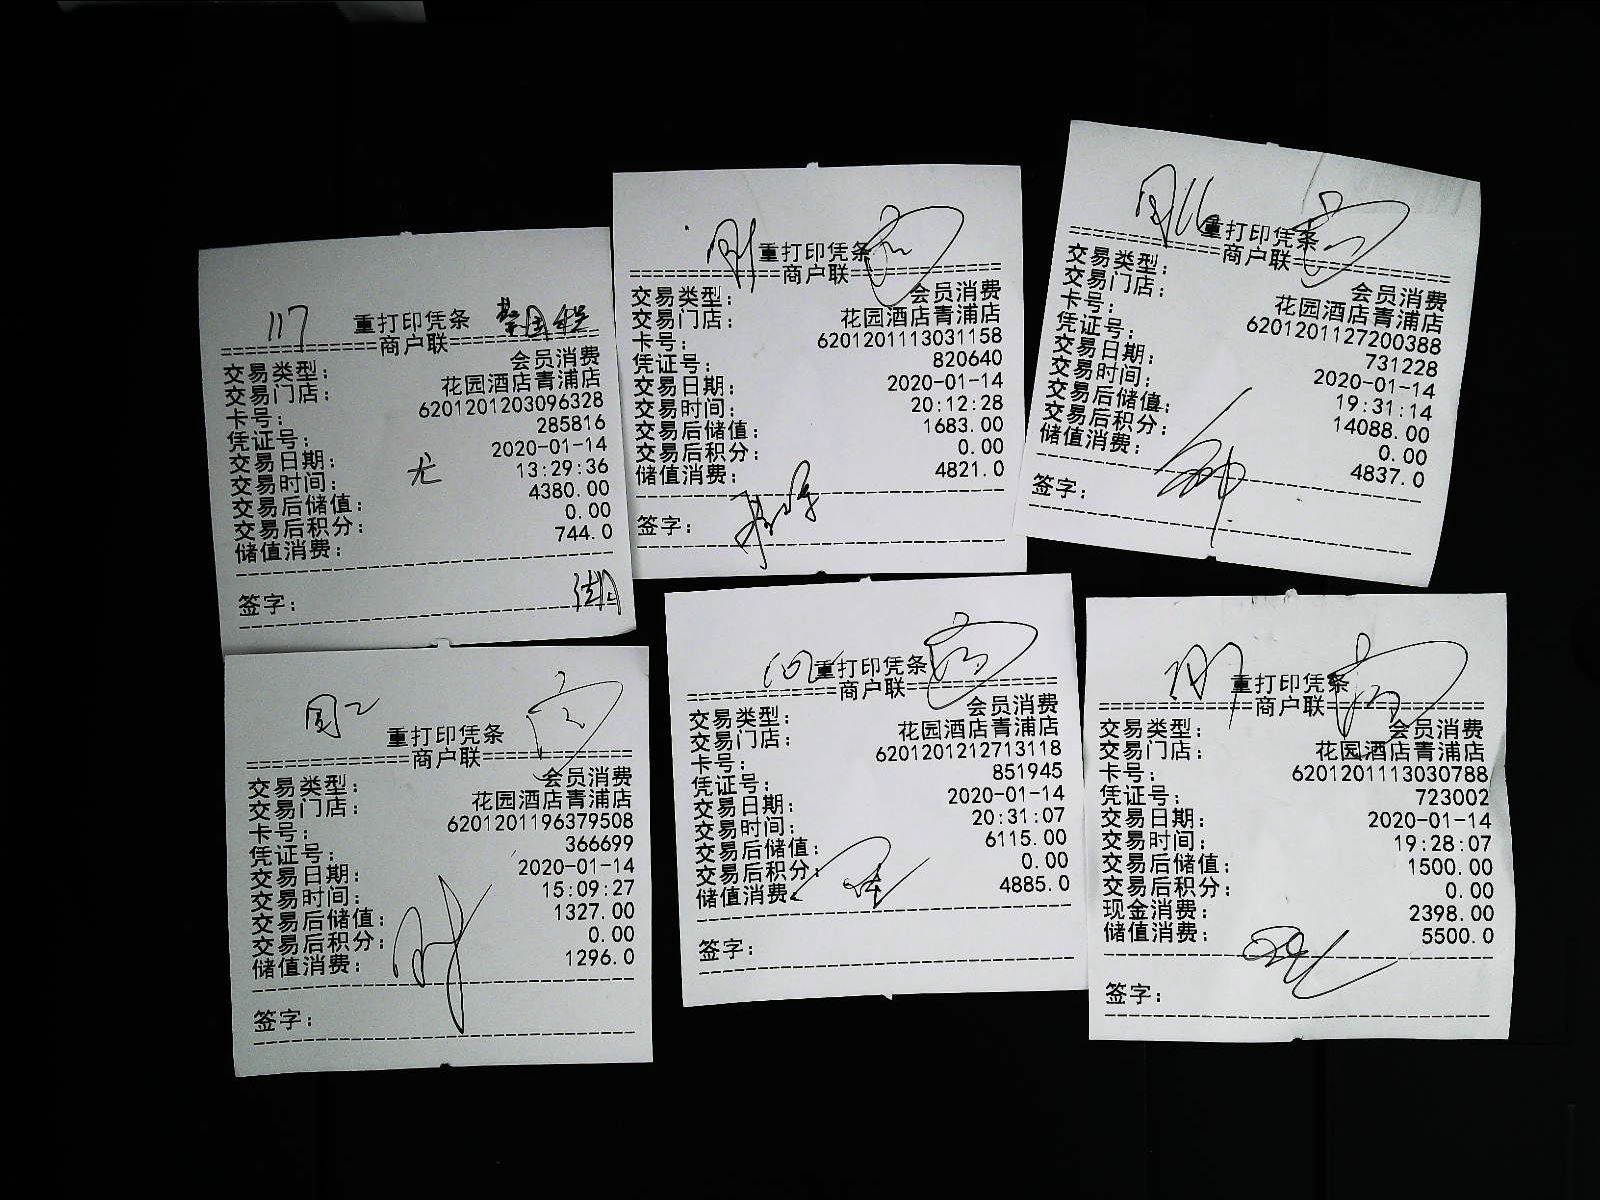 117
重打印凭条
商户联
交易类型: 会员消费
交易门店: 花园酒店青浦店
卡号: 6201201203096328
凭证号: 285816
交易日期: 2020-01-14
交易时间: 13:29:36
交易后储值: 4380.00
交易后积分: 0.00
储值消费: 744.0
签字:
重打印凭条
商户联
交易类型: 会员消费
交易门店: 花园酒店青浦店
卡号: 6201201113031158
凭证号: 820640
交易日期: 2020-01-14
交易时间: 20:12:28
交易后储值: 1683.00
交易后积分: 0.00
储值消费: 4821.0
签字:
重打印凭条
商户联
交易类型: 会员消费
交易门店: 花园酒店青浦店
卡号: 6201201127200388
凭证号: 731228
交易日期: 2020-01-14
交易时间: 19:31:14
交易后储值: 14088.00
交易后积分: 0.00
储值消费: 4837.0
签字:
重打印凭条
商户联
交易类型: 会员消费
交易门店: 花园酒店青浦店
卡号: 6201201196379508
凭证号: 366699
交易日期: 2020-01-14
交易时间: 15:09:27
交易后储值: 1327.00
交易后积分: 0.00
储值消费: 1296.0
签字:
重打印凭条
商户联
交易类型: 会员消费
交易门店: 花园酒店青浦店
卡号: 6201201212713118
凭证号: 851945
交易日期: 2020-01-14
交易时间: 20:31:07
交易后储值: 6115.00
交易后积分: 0.00
储值消费: 4885.0
签字:
重打印凭条
商户联
交易类型: 会员消费
交易门店: 花园酒店青浦店
卡号: 6201201113030788
凭证号: 723002
交易日期: 2020-01-14
交易时间: 19:28:07
交易后储值: 1500.00
交易后积分: 0.00
现金消费: 2398.00
储值消费: 5500.0
签字: